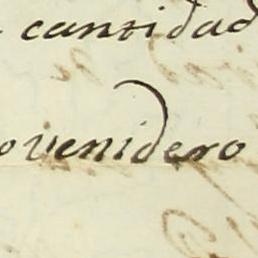 cantidad
ovenidero